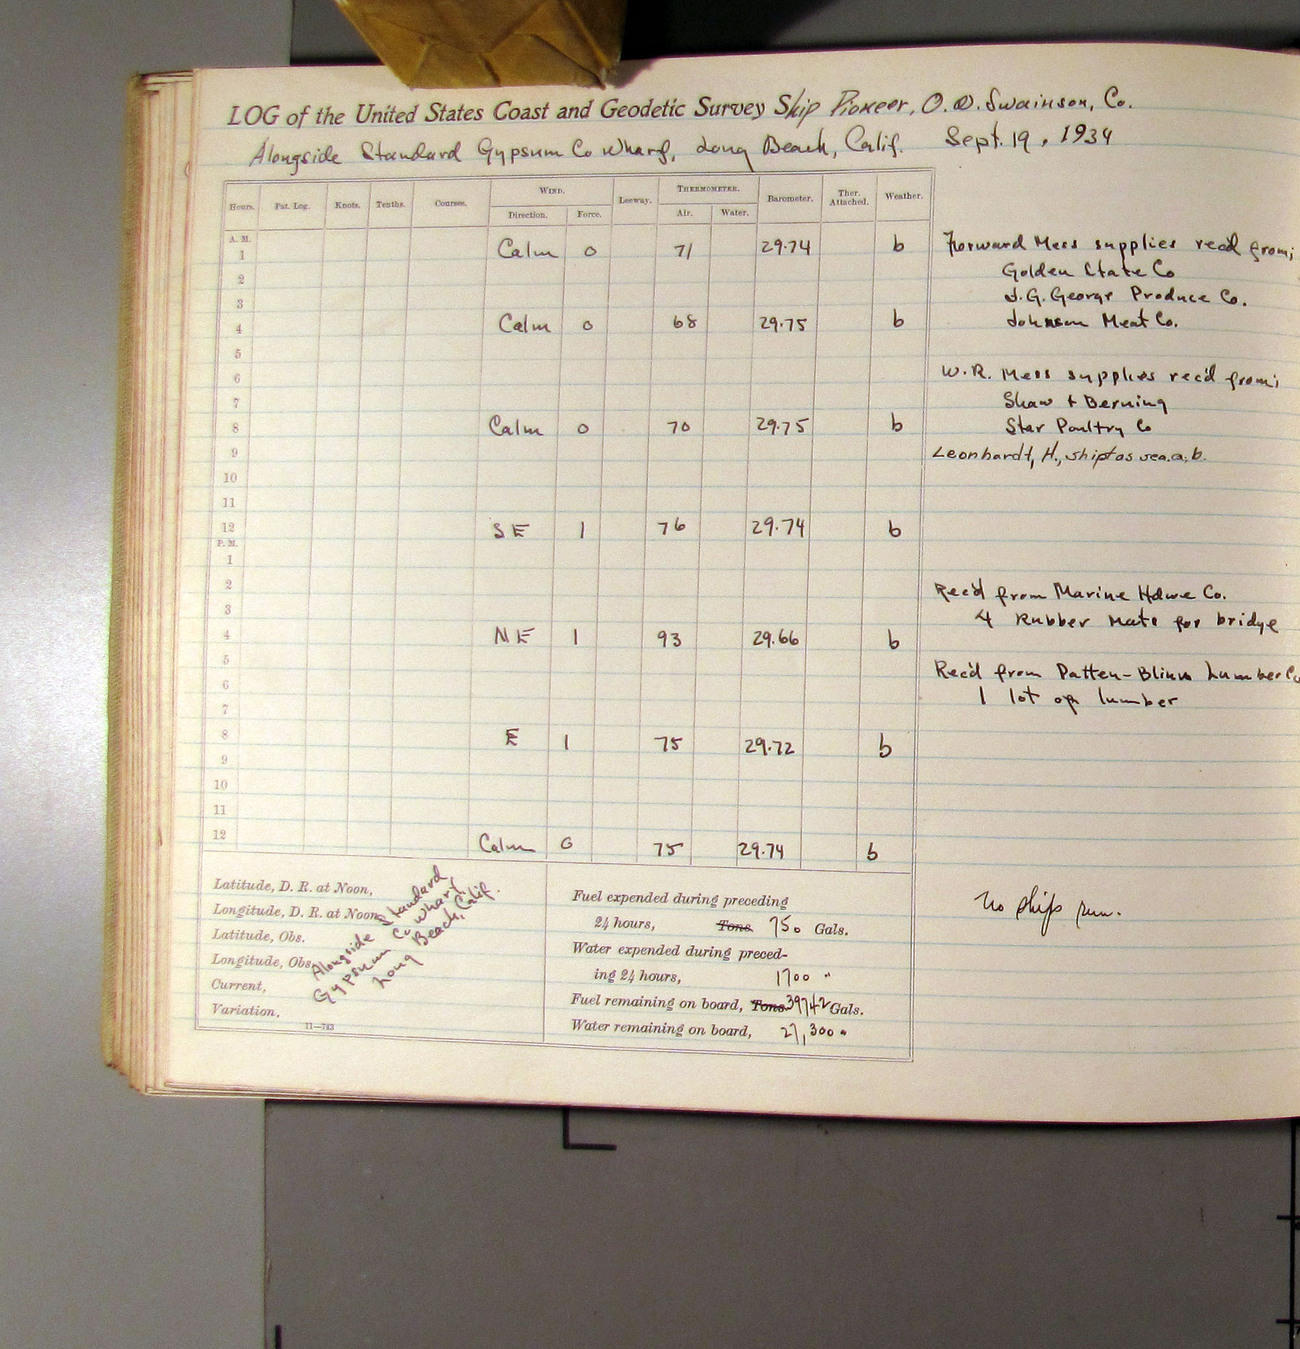 LOG of the United States Coast and Geodetic Survey Ship Pioneer, O. W. Swainson, Co.
Alongside Standard Gypsum Co Wharf, Long Beach, Calif. Sept. 19, 1934
Hours. Pat. Log. Knots. Tenths. Courses. WIND. Direction. Force. Leeway. THERMOMETER. Air. Water. Barometer. Ther. Attached. Weather.
A. M.
1 Calm 0 71 29.74 b Forward Mess supplies rec'd from;
2 Golden State Co
3 J.G. George Produce Co.
4 Calm 0 68 29.75 b Johnson Meat Co.
5
6 W.R. Mess supplies rec'd from;
7 Shaw + Berning
8 Calm 0 70 29.75 b Star Poultry Co
9 Leonhardt, H., shipt as sea. a. b.
10
11
12 SE 1 76 29.74 b
P. M.
1
2 Rec'd from Marine Hdwe Co.
3 4 Rubber Mats for bridge
4 NE 1 93 29.66 b
5 Rec'd from Patten-Blinn Lumber Co
6 1 lot of lumber
7
8 E 1 75 29.72 b
9
10
11
12 Calm 0 75 29.74 b
Latitude, D. R. at Noon,
Longitude, D. R. at Noon,
Latitude, Obs.
Longitude, Obs.
Current,
Variation,
Alongside Standard
Gypsum Co Wharf,
Long Beach, Calif.
11—783
Fuel expended during preceding
24 hours, Tons. 750 Gals.
Water expended during preced-
ing 24 hours, 1700 "
Fuel remaining on board, Tons. 39742 Gals.
Water remaining on board, 27,300 "
No ship run.